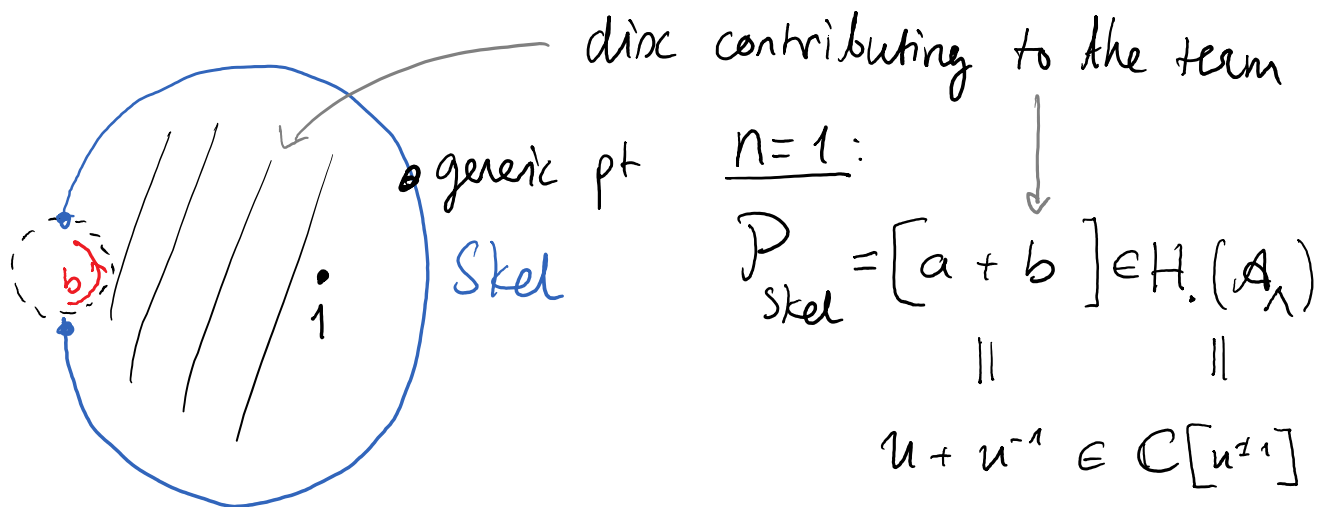 disc contributing to the term
generic pt
n=1:
Skel
b
1
P_Skel = [a + b] ∈ H.(A_Λ)
|| ||
u + u⁻¹ ∈ C[u^±1]